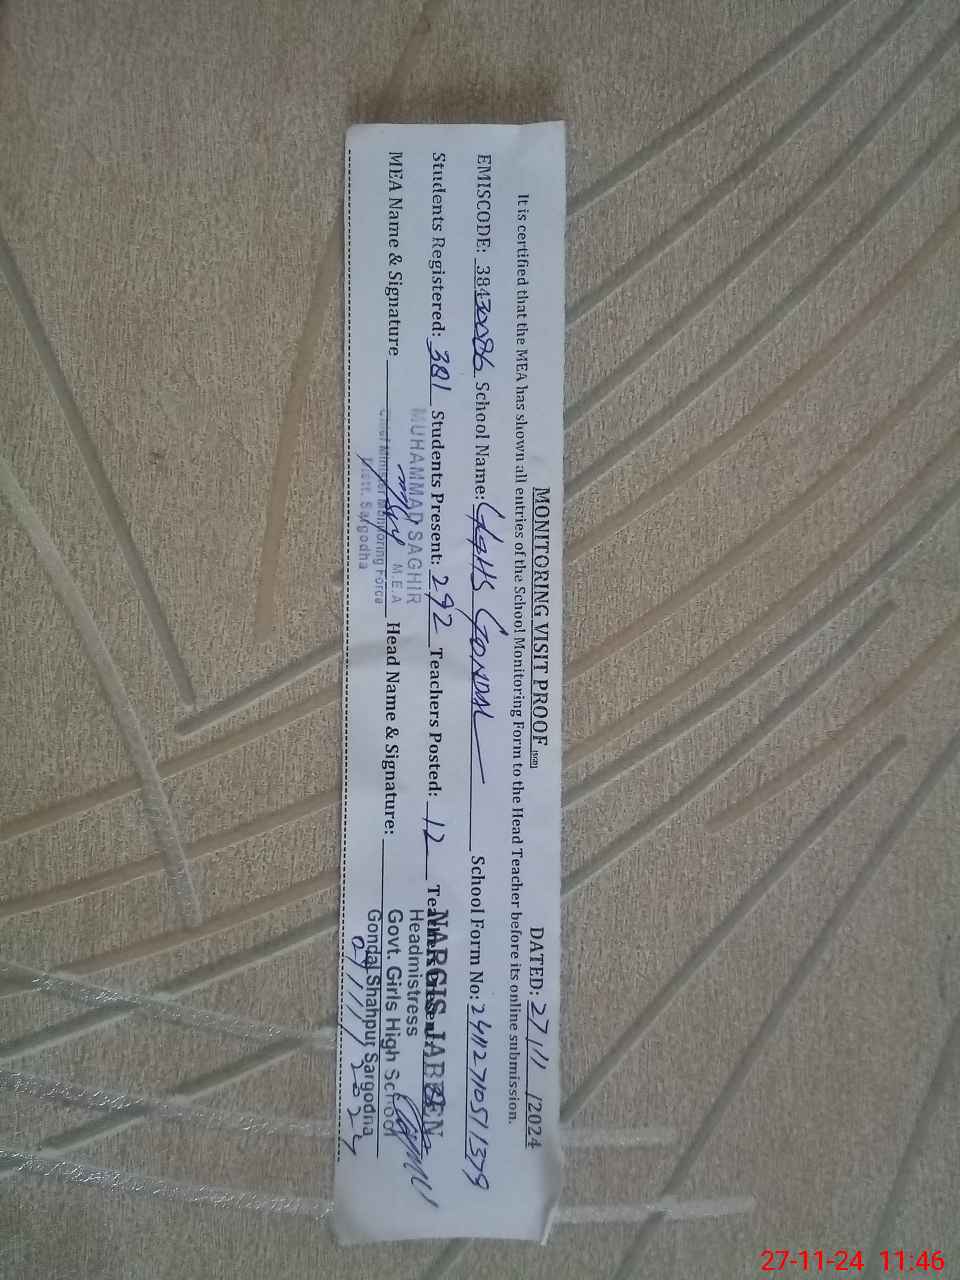 MONITORING VISIT PROOF DATED: 27/11/2024
It is certified that the MEA has shown all entries of the School Monitoring Form to the Head Teacher before its online submission.
EMISCODE: 38430086 School Name: GGHS GONDAL School Form No: 24112710511379
Students Registered: 381 Students Present: 292 Teachers Posted: 12
NARGIS JABEEN
MUHAMMAD SAGHIR
Headmistress
M.E.A
MEA Name & Signature Head Name & Signature:
Govt. Girls High School
Chief Minister Monitoring Force
Gondal Shahpur Sargodha
Distt. Sargodha
27/11/2024
27-11-24 11:46